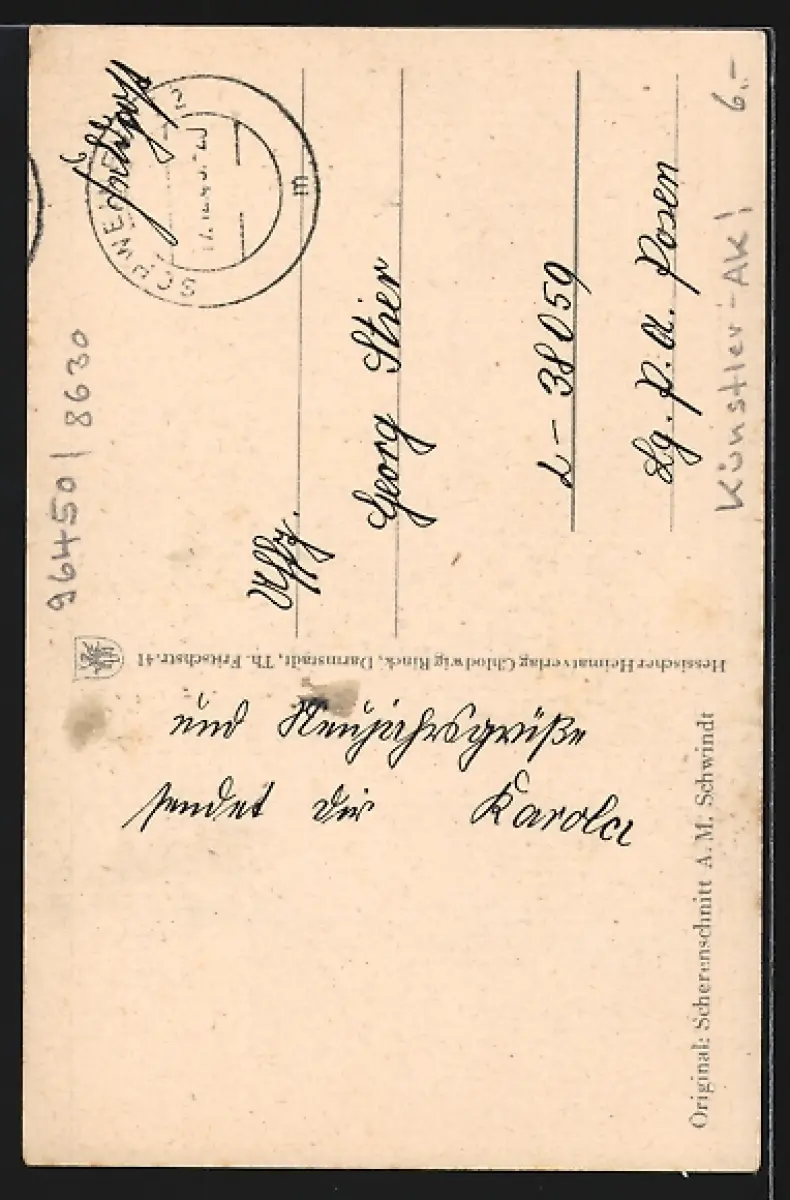 Feldpost
SCHWEIN
2
m
Uffz.
Georg Stier
L-38059
Lg. P. A. Posen
Künstler-AK! 6,-
96450/8630
Hessischer Heimatverlag Chlodwig Rinck, Darmstadt, Th. Fritschstr. 41
und Neujahrsgrüße
sendet dir Karola
Original: Scherenschnitt A. M. Schwindt